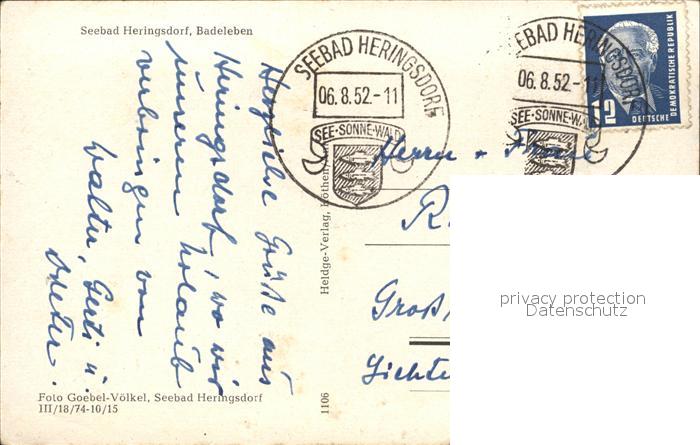 Seebad Heringsdorf, Badeleben
Herzliche Grüße aus
Heringsdorf, wo wir
unseren Urlaub
verbringen von
Walter, Gerti u.
Dieter.
Foto Goebel-Völkel, Seebad Heringsdorf
III/18/74-10/15
Heldge-Verlag, Köthen
1106
SEEBAD HERINGSDORF
06.8.52.-11
SEE·SONNE·WALD
SEEBAD HERINGSDORF
06.8.52.-11
SEE·SONNE·WALD
12
DEUTSCHE
DEMOKRATISCHE REPUBLIK
Herrn + Frau
R
Groß
Lichte
privacy protection
Datenschutz